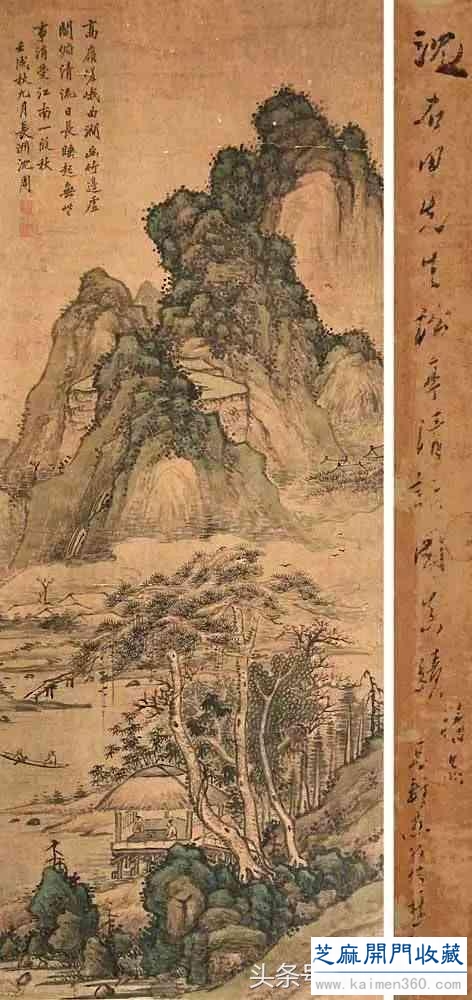 高嶺嵯峨面湖幽竹邊虛
閣俯清流日長睡起無些
事消受江南一段秋
壬戌秋九月長洲沈周
沈石田先生松亭清話圖真蹟
头条号
芝麻開門收藏
www.kaimen360.com